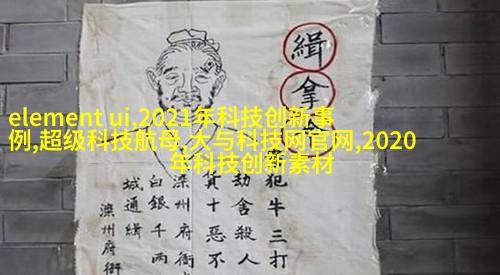 緝
拿
element ui,2021年科技创新事
例,超级科技航母,大与科技网官网,2020
年科技创新素材
犯牛三打
劫舍殺人
真十惡不
滦州府衙
白銀千两
城通緝
滦州府衙